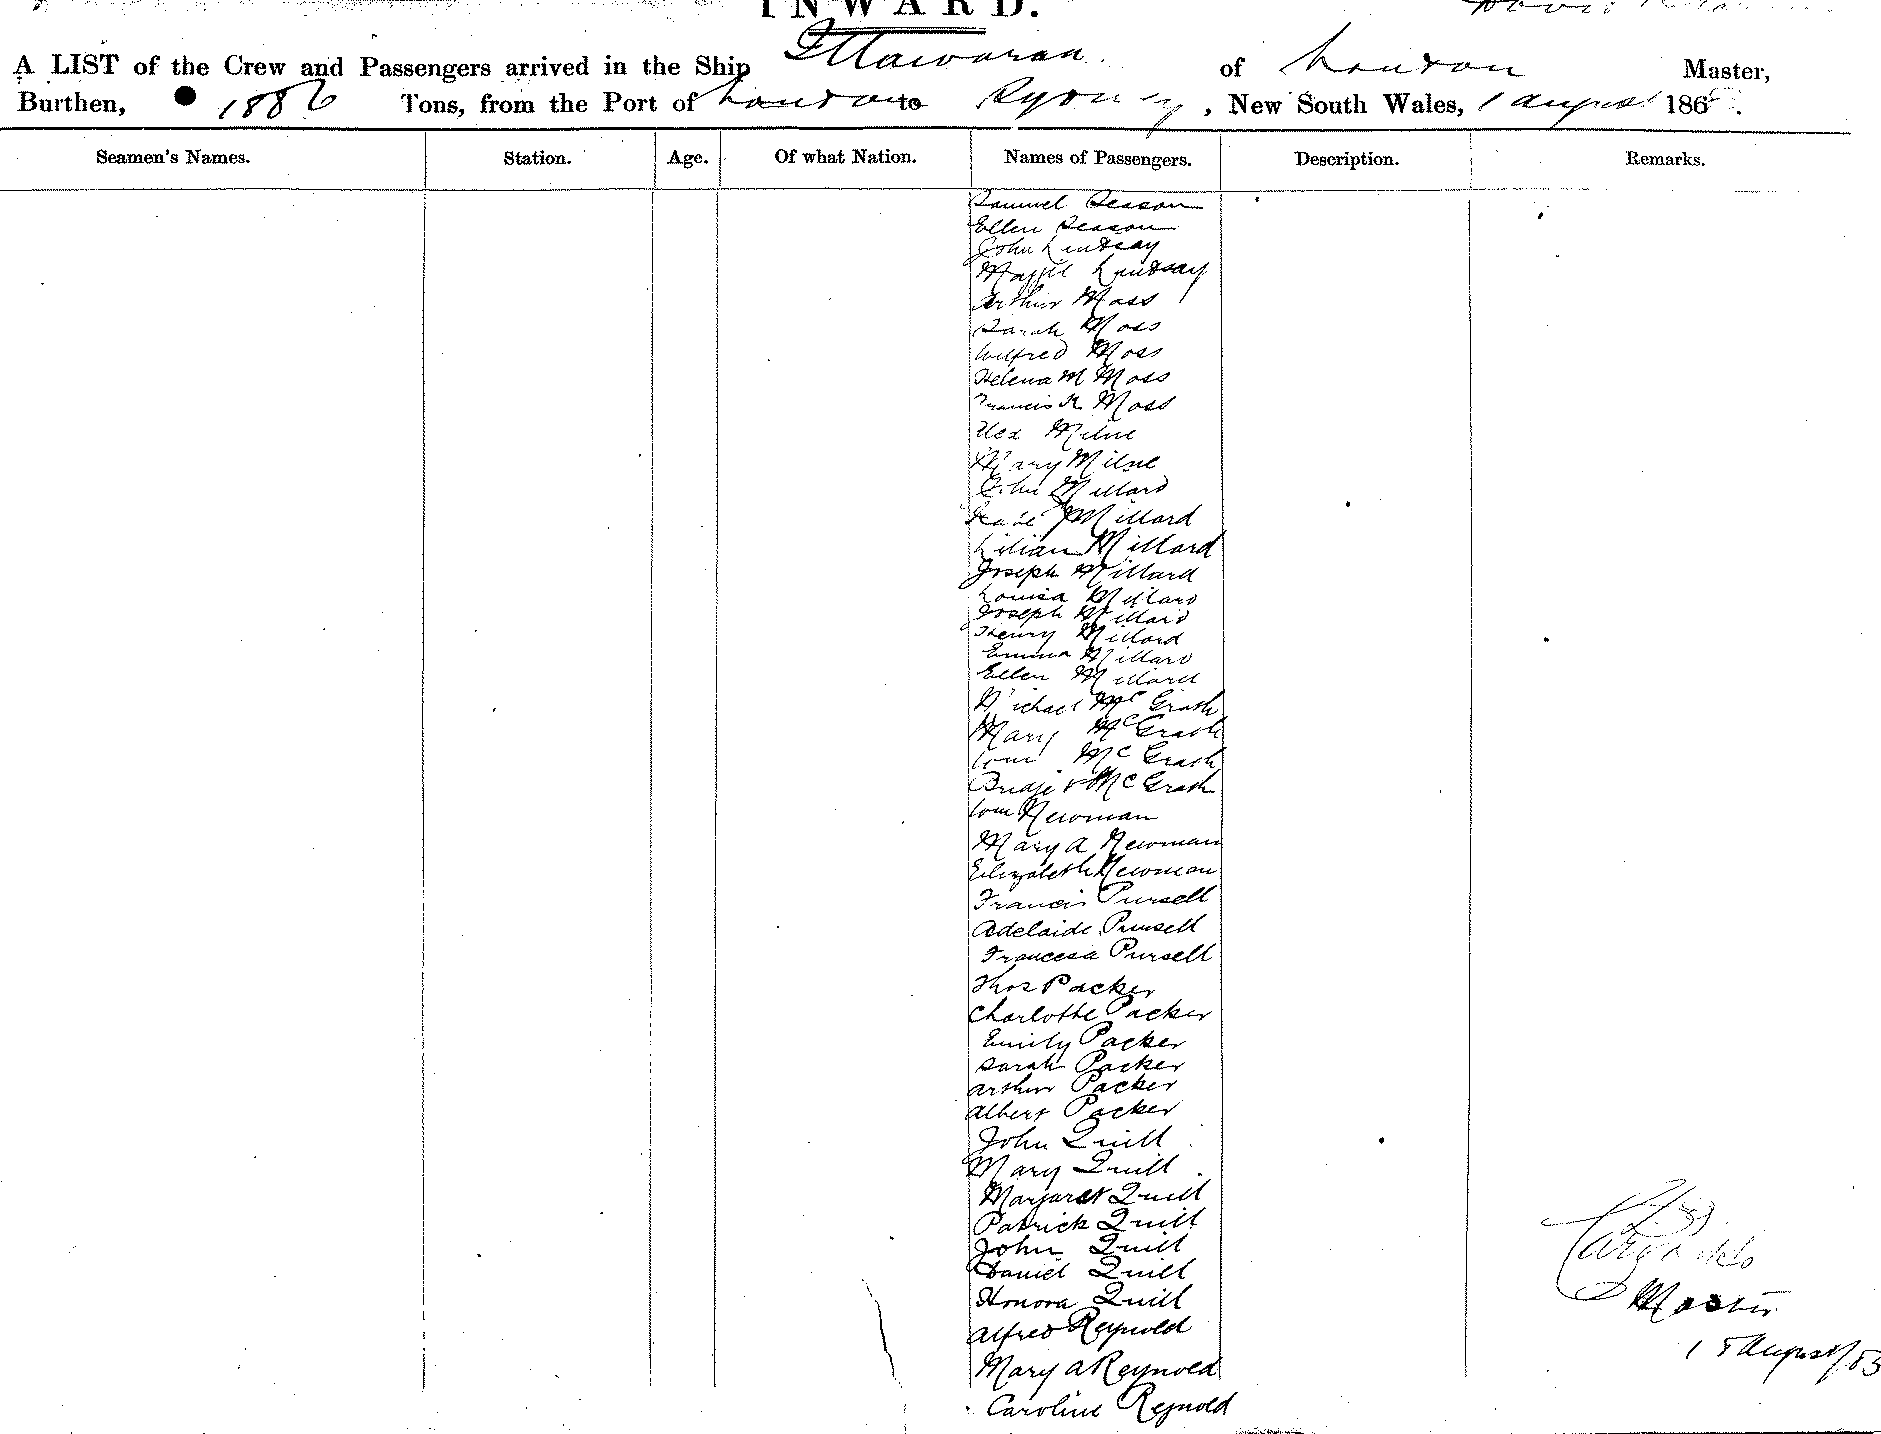 INWARD.
A LIST of the Crew and Passengers arrived in the Ship Illawarra of London Master,
Burthen, 1886 Tons, from the Port of London to Sydney, New South Wales, 1 August 186
Seamen's Names. Station. Age. Of what Nation. Names of Passengers. Description. Remarks.
Samuel Season
Ellen Season
John Lindsay
Maggie Lindsay
Arthur Moss
Sarah Moss
Wilfred Moss
Helena M Moss
Francis H Moss
Alex Milne
Mary Milne
John Millard
Millard
Lilian Millard
Joseph Millard
Louisa Millard
Joseph Millard
Henry Millard
Emma Millard
Ellen Millard
Michael McGrath
Mary McGrath
Tom McGrath
Bridget McGrath
Tom Newman
Mary A Newman
Elizabeth Newman
Francis Pursell
Adelaide Pursell
Francesa Pursell
Thos Packer
Charlotte Packer
Emily Packer
Sarah Packer
Arthur Packer
Albert Packer
John Quill
Mary Quill
Margaret Quill
Patrick Quill
John Quill
Daniel Quill
Honora Quill
Alfred Reynold
Mary A Reynold
Caroline Reynold
Master
1st August/83